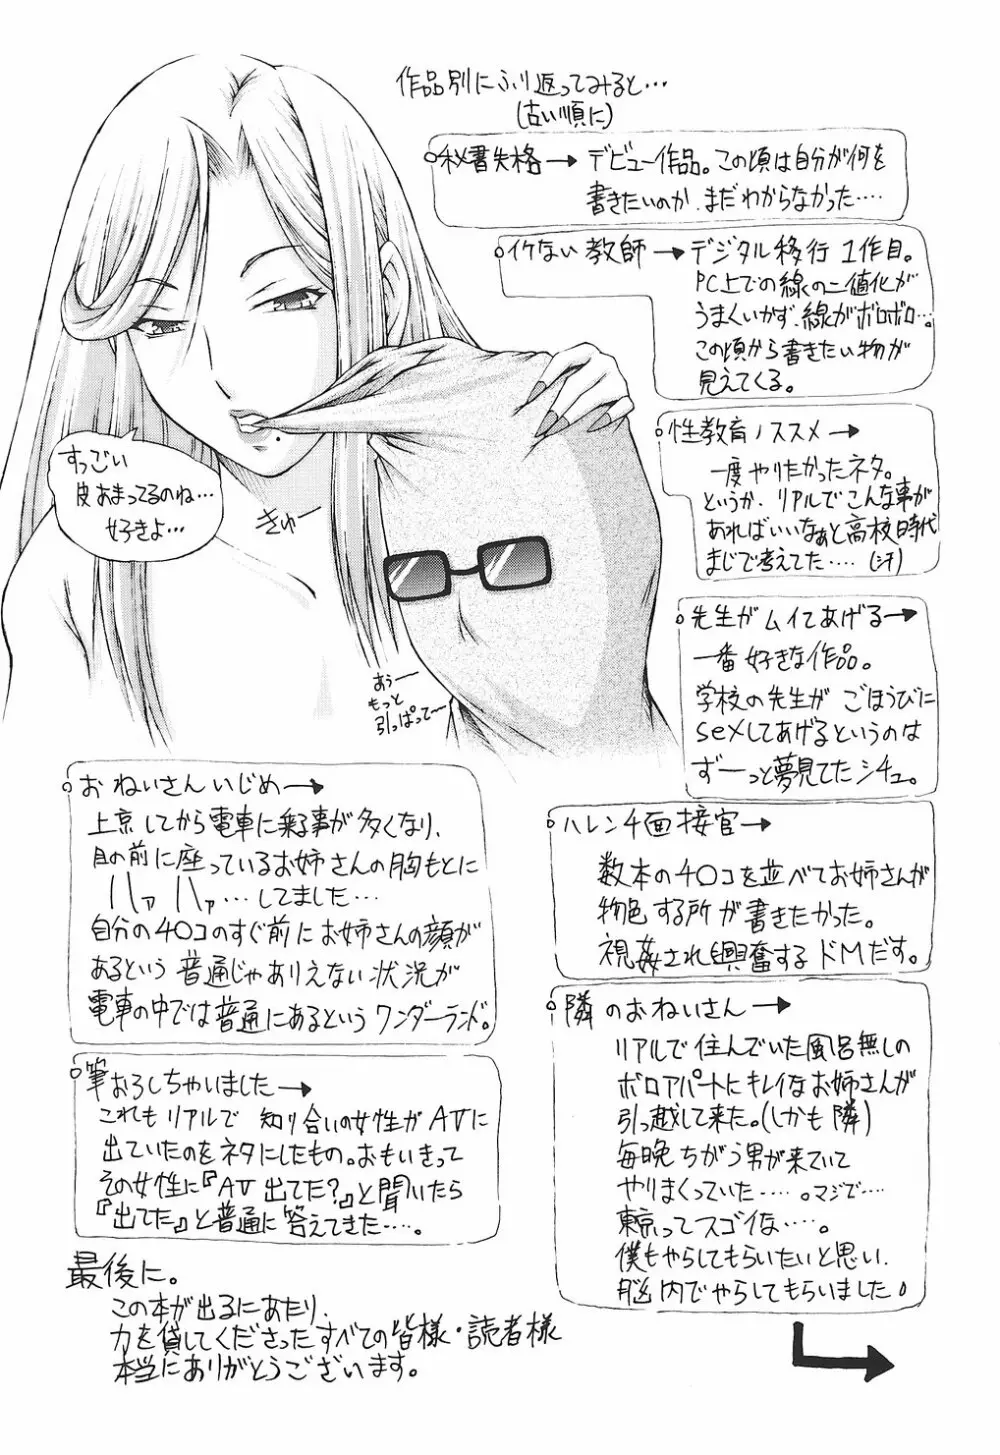 作品別にふり返ってみると…
(古い順に)
秘書失格→デビュー作品。この頃は自分が何を
書きたいのか、まだわからなかった‥‥
イケない教師→デジタル移行1作目。
PC上での線の二値化が
うまくいかず、線がボロボロ…。
この頃から書きたい物が
見えてくる。
性教育ノススメ→
一度やりたかったネタ。
というか、リアルでこんな事が
あればいいなぁと高校時代
まじで考えてた‥‥(汗)
先生がムイてあげる→
一番好きな作品。
学校の先生が ごほうびに
sexしてあげるというのは
ずーっと夢見てたシチュ。
すっごい
皮あまってるのね…
好きよ…
きゅー
おぅー
もっと
引っぱって〜
おねいさんいじめ→
上京してから電車に乗る事が多くなり、
目の前に座っているお姉さんの胸もとに
ハァハァ…してました…
自分の4〇コのすぐ前にお姉さんの顔が
あるという 普通じゃありえない状況が
電車の中では普通にあるという ワンダーランド。
ハレンチ面接官→
数本の4〇コを並べてお姉さんが
物色する所が書きたかった。
視姦され興奮するドMだす。
隣のおねいさん→
リアルで住んでいた風呂無しの
ボロアパートにキレイなお姉さんが
引っ越して来た。(しかも隣)
毎晩ちがう男が来ていて
やりまくっていた‥‥。マジで‥‥
東京ってスゴイな‥‥。
僕もやらしてもらいたいと思い、
脳内でやらしてもらいました。
筆おろしちゃいました→
これもリアルで 知り合いの女性がAVに
出ていたのをネタにしたもの。おもいきって
その女性に『AV出てた?』と聞いたら
『出てた』と普通に答えてきた‥‥。
最後に。
この本が出るにあたり、
力を貸してくださったすべての皆様・読者様
本当にありがとうございます。